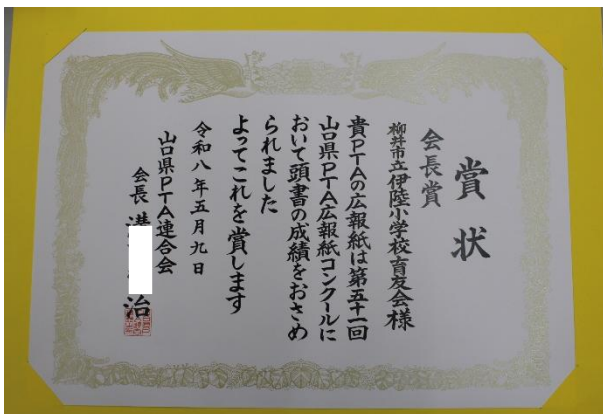 賞状
会長賞
柳井市立伊陸小学校育友会様
貴PTAの広報紙は第五十一回
山口県PTA広報紙コンクールに
おいて頭書の成績をおさめ
られました
よってこれを賞します
令和八年五月九日
山口県PTA連合会
会長
治